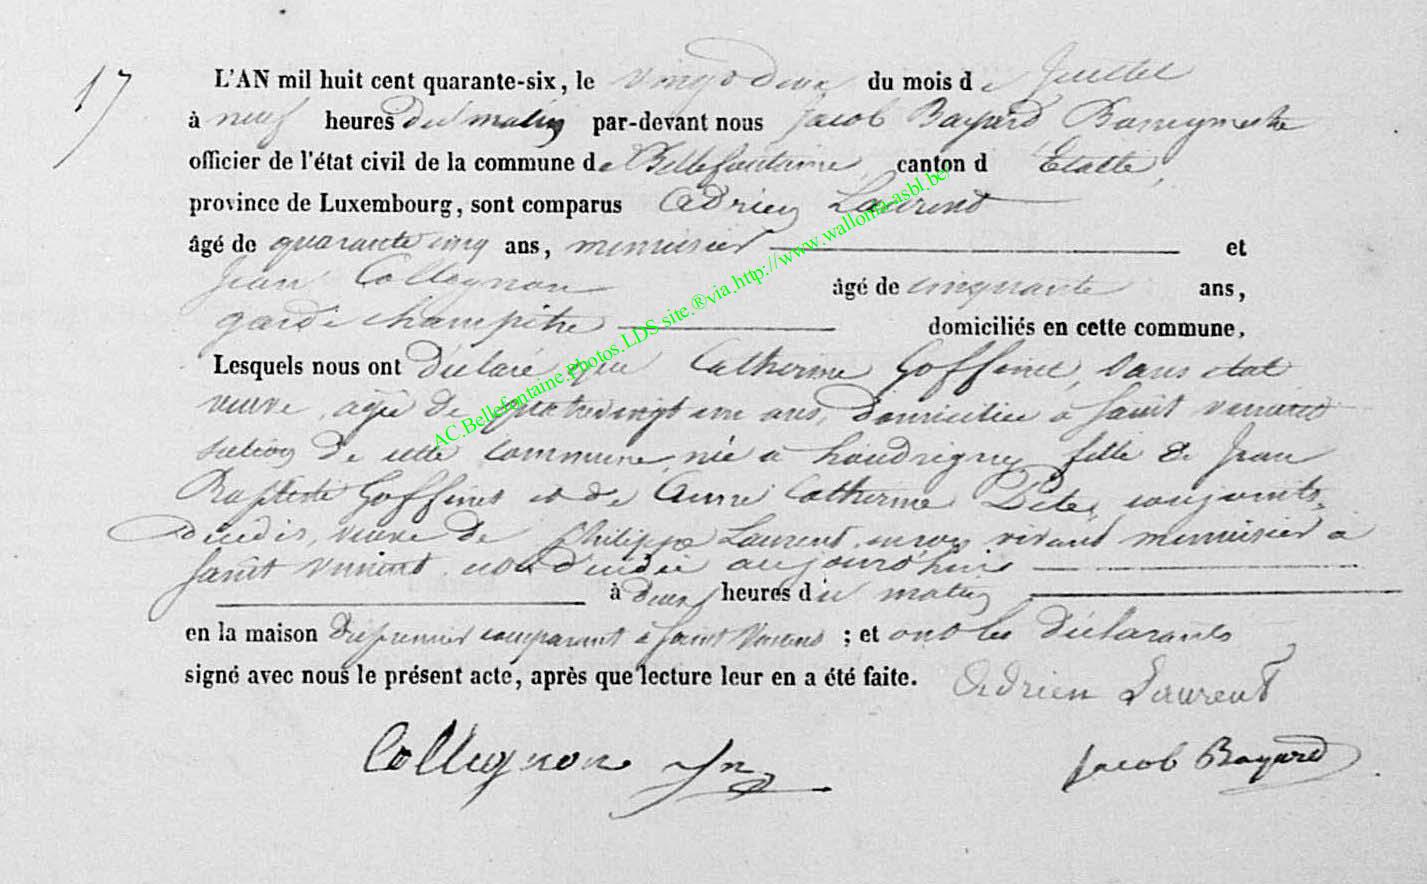 17
L'AN mil huit cent quarante-six, le vingt deux du mois de Juillet
à neuf heures du matin par-devant nous Jacob Bayard Bourgmestre
officier de l'état civil de la commune de Bellefontaine, canton d Etalle,
province de Luxembourg, sont comparus Adrien Laurent
âgé de quarante cinq ans, menuisier et
Jean Collegnon âgé de cinquante ans,
garde champêtre domiciliés en cette commune,
Lesquels nous ont déclaré que Catherine Goffinet, sans état
veuve, agée de quatrevingt un ans, domiciliée à Saint Vincent
section de cette commune, née à houdrigny fille de Jean
Baptiste Goffinet et de Anne Catherine conjoints,
décédés, veuve de Philippe Laurent, vivant menuisier à
Saint Vincent, est décédée aujourd'hui
à deux heures du matin
en la maison du premier comparant à Saint Vincent ; et ont les déclarants
signé avec nous le présent acte, après que lecture leur en a été faite. Adrien Laurent
Collegnon Jn Jacob Bayard
AC.Bellefontaine.Photos.LDS.site.®via.http://www.wallonia-asbl.be/